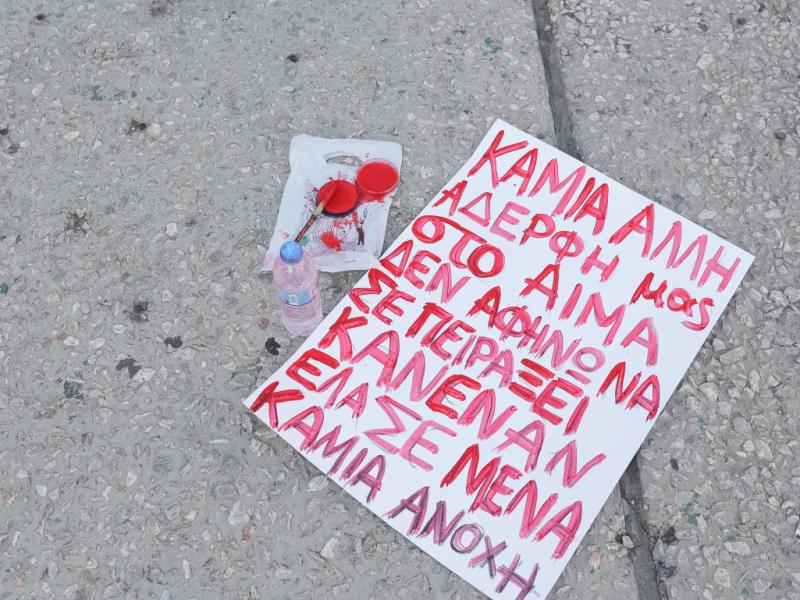 ΚΑΜΙΑ ΑΛΛΗ
ΑΔΕΡΦΗ μας
ΣΤΟ ΑΙΜΑ
ΔΕΝ ΑΦΗΝΩ ΝΑ
ΣΕ ΠΕΙΡΑΞΕΙ
ΚΑΝΕΝΑΝ
ΕΛΑ ΣΕ ΜΕΝΑ
ΚΑΜΙΑ ΑΝΟΧΗ